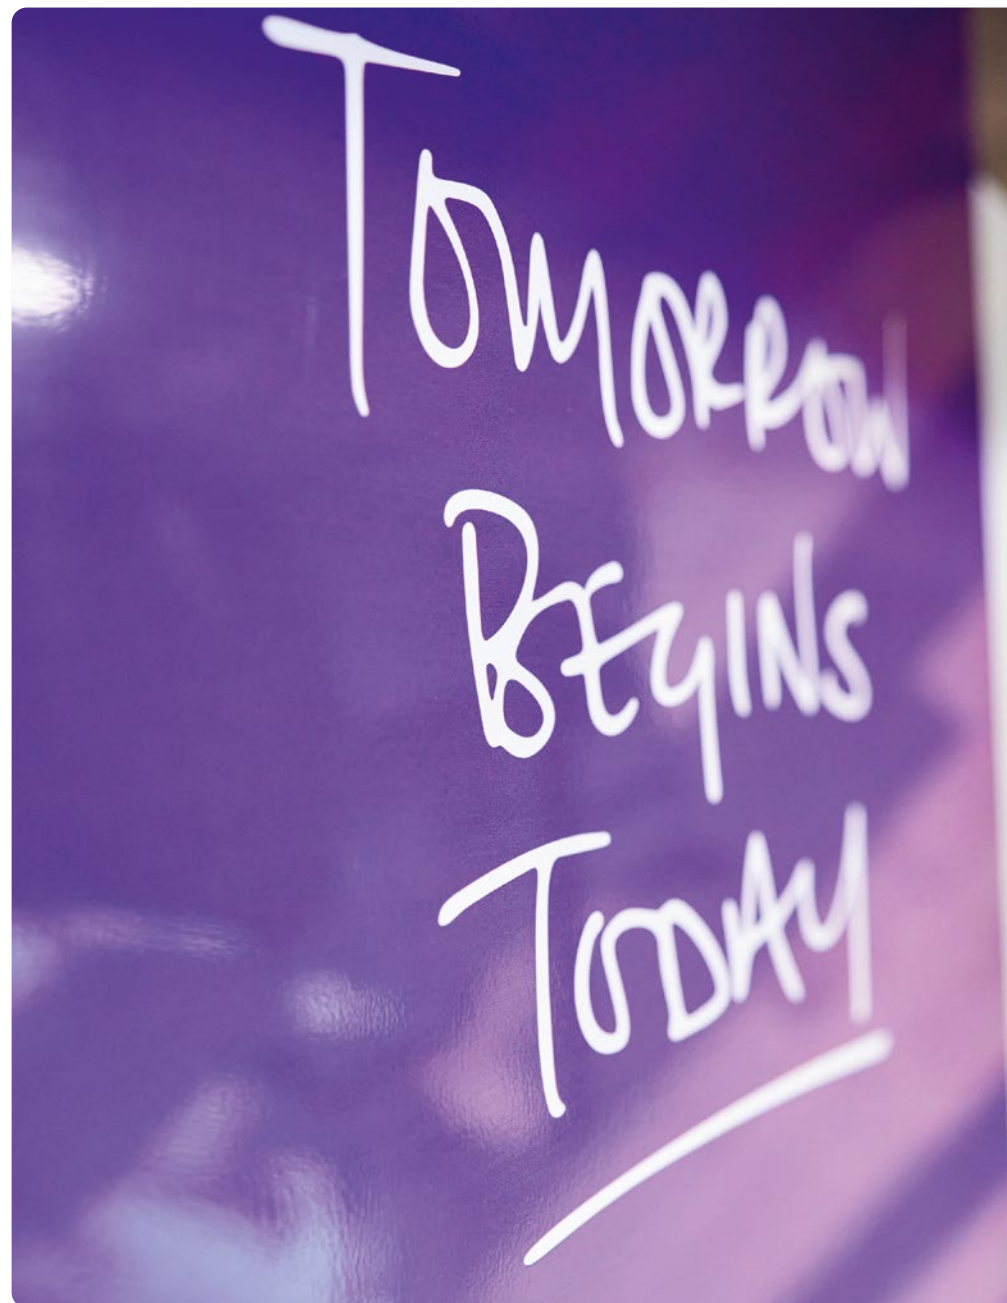 TOMORROW
BEGINS
TODAY